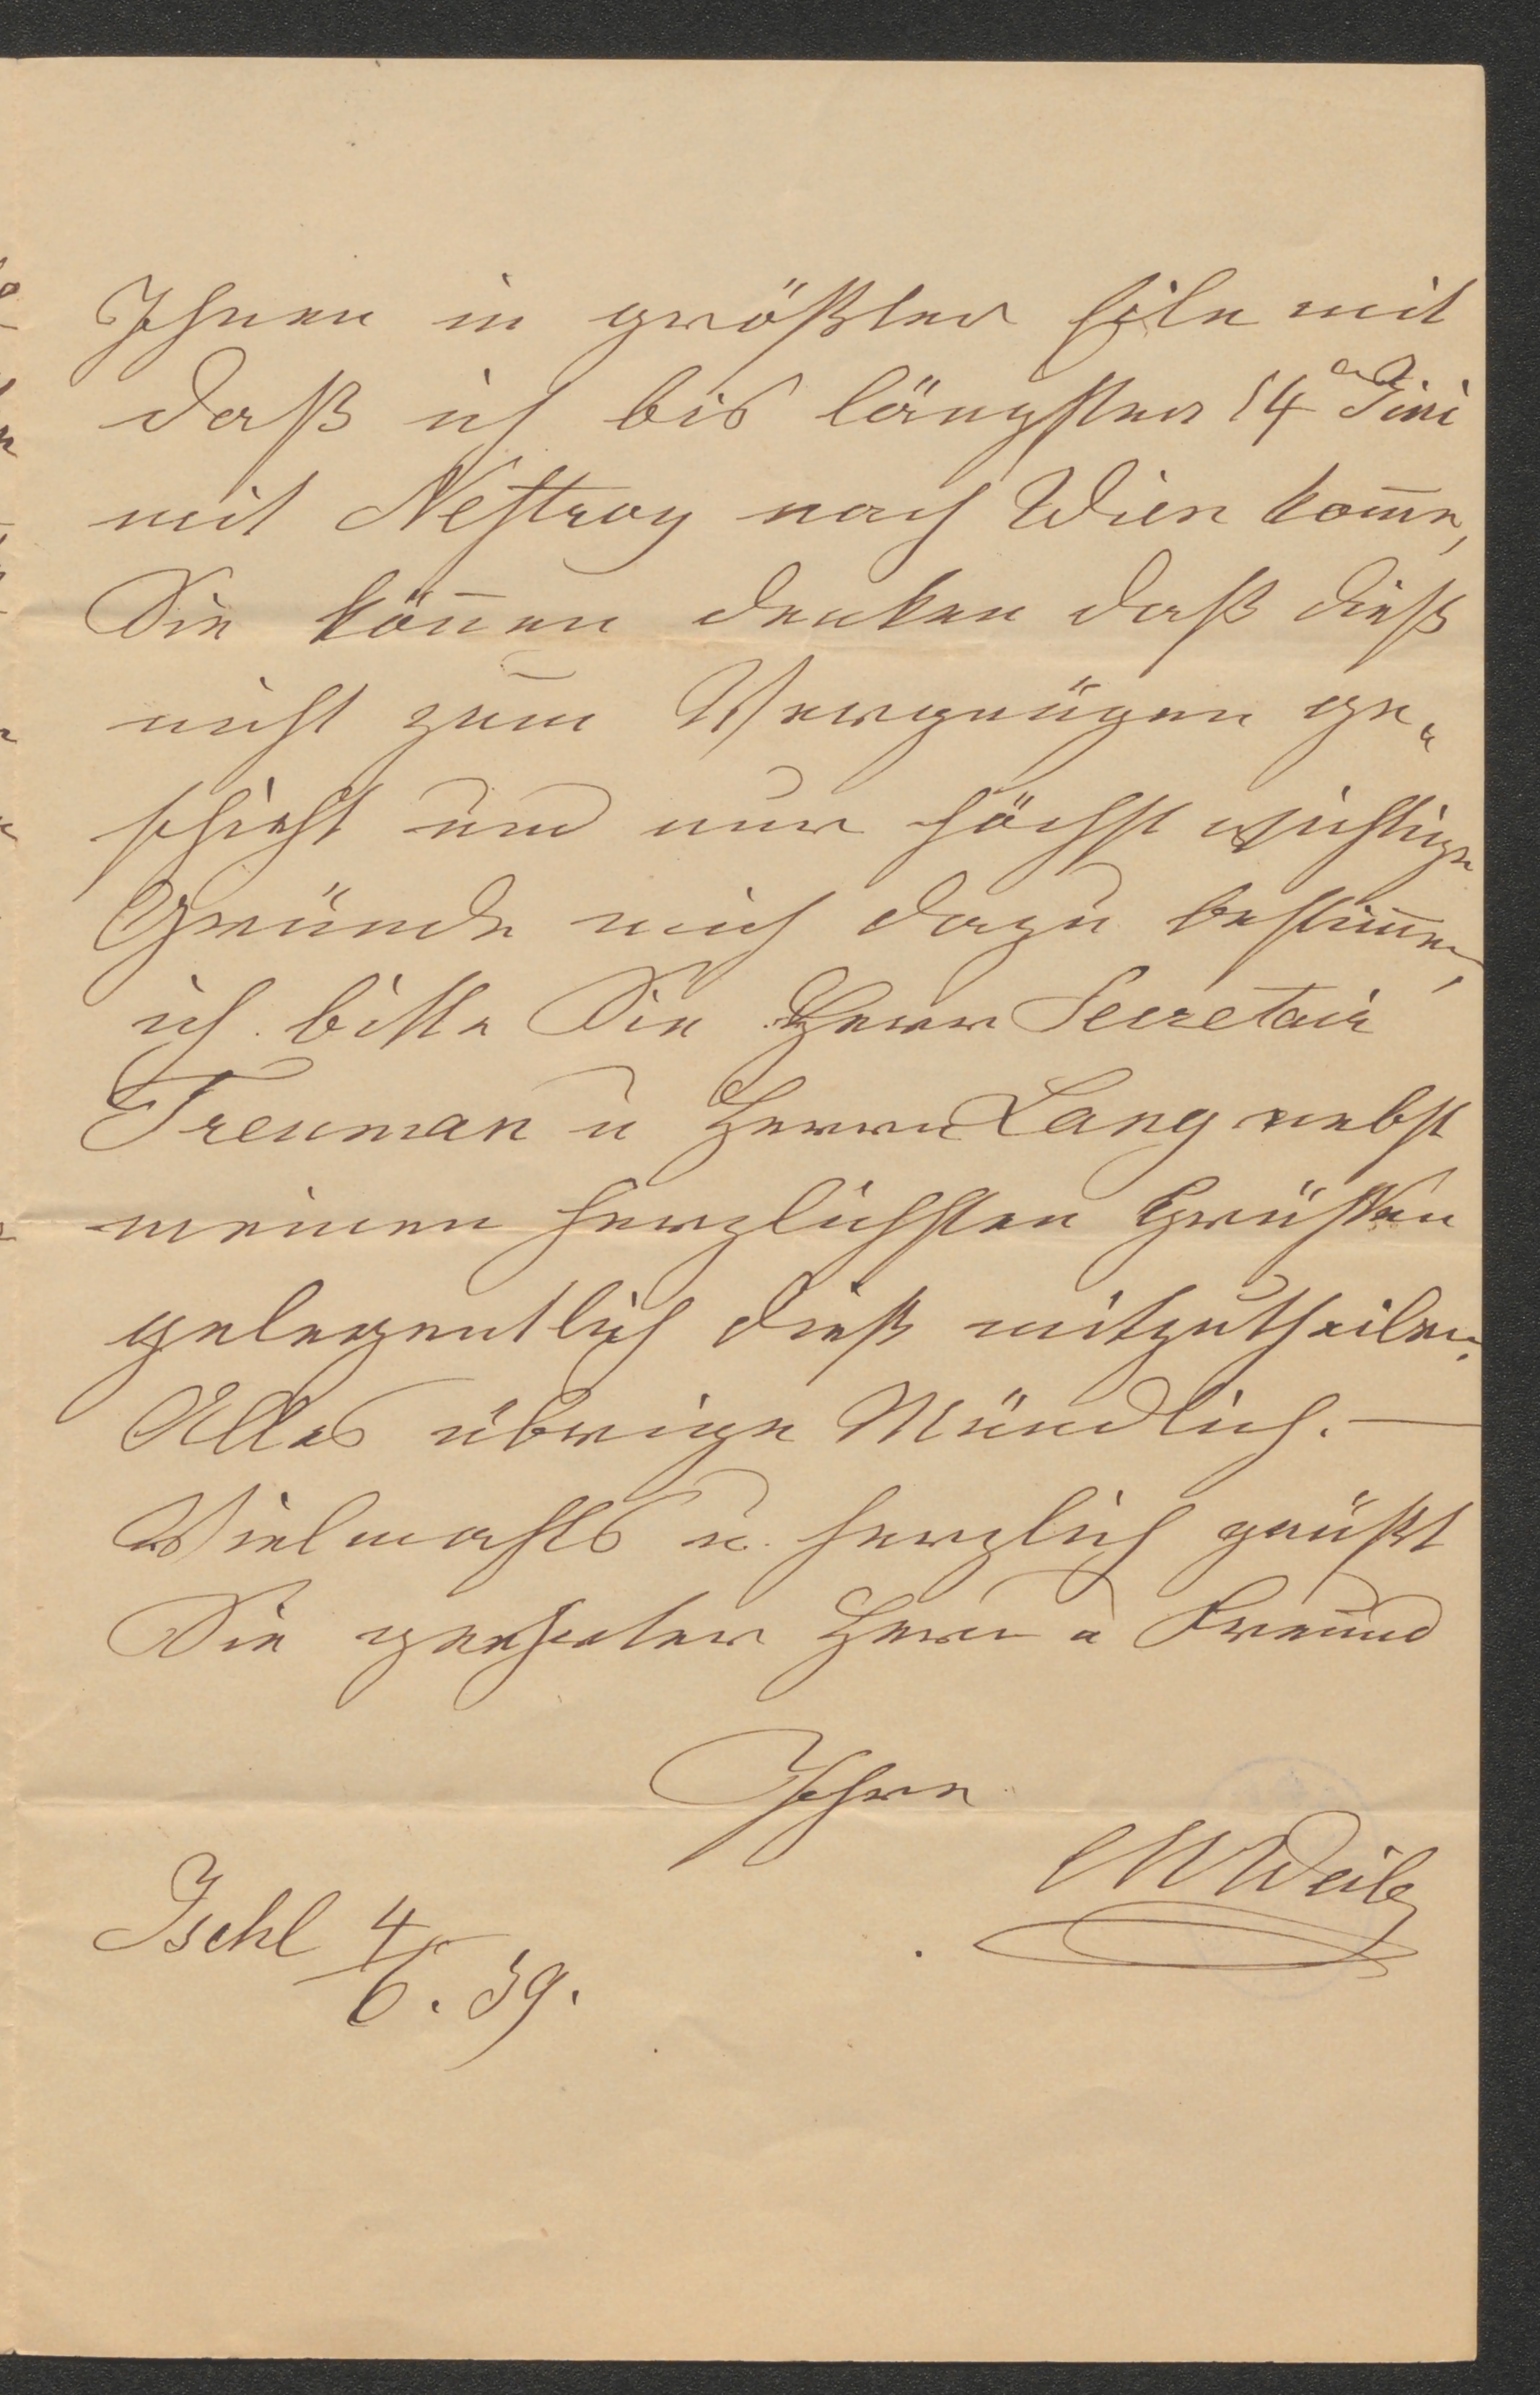 Ihnen in größter Eile mit
daß ich bis längsten 14 Juni
mit Nestroy nach Wien kom̅e,
Sie kön̅en denken daß dieß
nicht zum Vergnügen ge„
schieht und nur höchst wichtige
Gründe mich dazu bestim̅en,
ich bitte Sie Herrn Secretair
Treuman u Herrn Lang nebst
meinen herzlichsten Grüßen
gelegentlich dieß mitzutheilen.
Alles übrige Mündlich. —
Vielmahls u. herzlich grüßt
Sie geehrter Herr u Freund
Ihre
MWeiler
Ischl 4/6. 59.